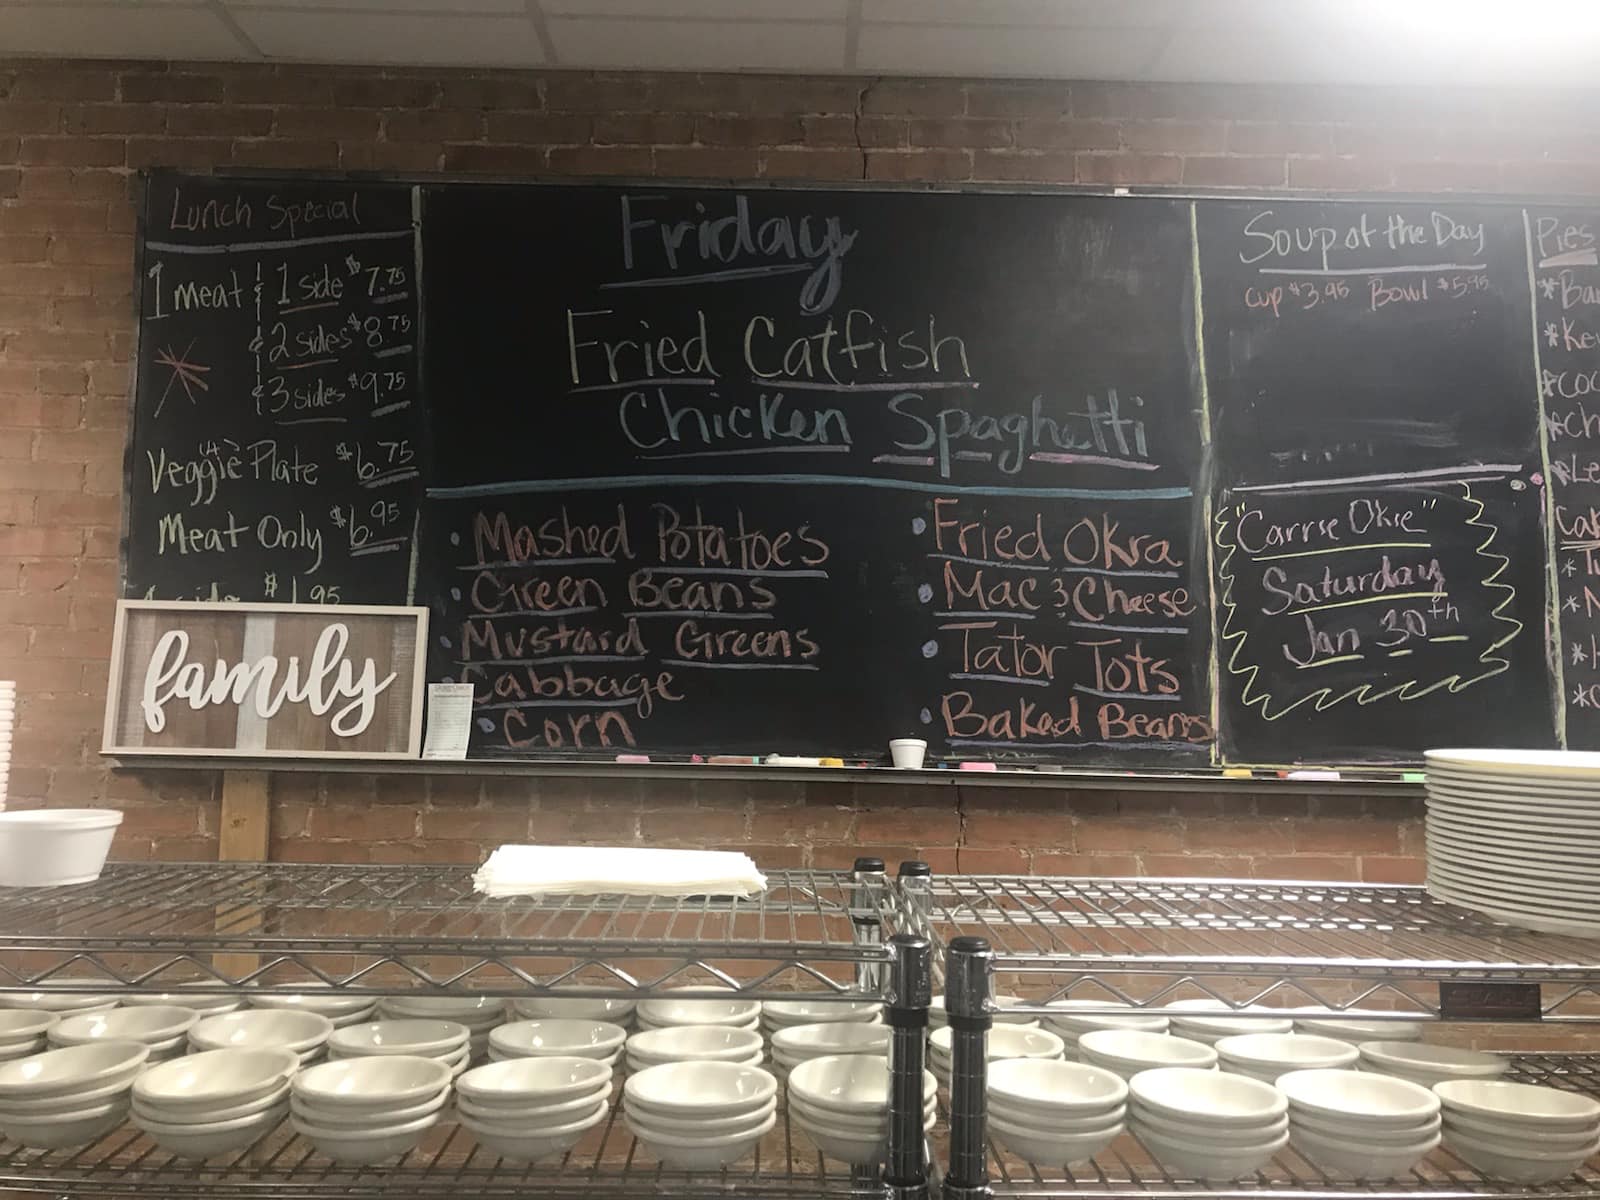 Lunch Special
1 meat & 1 side $7.75
& 2 sides $8.75
& 3 sides $9.75
Veggie Plate (4) $6.75
Meat Only $6.95
$1.95
family
Friday
Fried Catfish
Chicken Spaghetti
• Mashed Potatoes
• Green Beans
• Mustard Greens
Cabbage
• Corn
• Fried Okra
• Mac & Cheese
• Tator Tots
• Baked Beans
Soup of the Day
Cup $3.95 Bowl $5.95
"Carrie Okie"
Saturday
Jan 30th
Pies